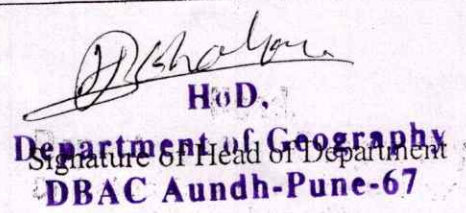 HoD.
Department of Geography
Signature of Head of Department
DBAC Aundh-Pune-67